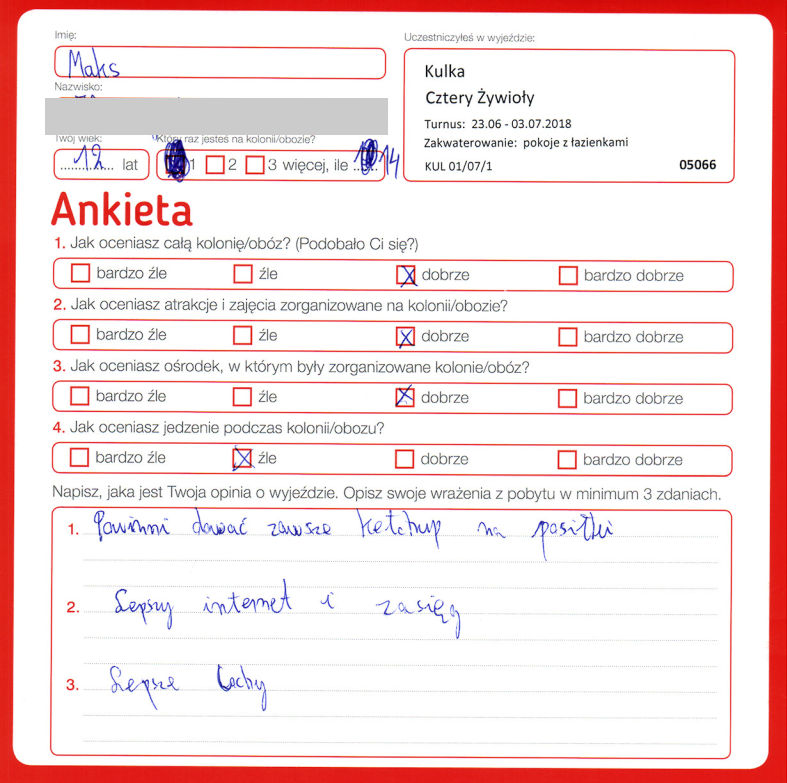 Imię:
Uczestniczyłeś w wyjeździe:
Maks
Kulka
Nazwisko:
Cztery Żywioły
Turnus: 23.06 - 03.07.2018
Zakwaterowanie: pokoje z łazienkami
KUL 01/07/1 05066
Twój wiek:
Który raz jesteś na kolonii/obozie?
12 lat
1 2 3 więcej, ile 14
Ankieta
1. Jak oceniasz całą kolonię/obóz? (Podobało Ci się?)
bardzo źle źle dobrze bardzo dobrze
2. Jak oceniasz atrakcje i zajęcia zorganizowane na kolonii/obozie?
bardzo źle źle dobrze bardzo dobrze
3. Jak oceniasz ośrodek, w którym były zorganizowane kolonie/obóz?
bardzo źle źle dobrze bardzo dobrze
4. Jak oceniasz jedzenie podczas kolonii/obozu?
bardzo źle źle dobrze bardzo dobrze
Napisz, jaka jest Twoja opinia o wyjeździe. Opisz swoje wrażenia z pobytu w minimum 3 zdaniach.
1. Powinni dawać zawsze ketchup na posiłki
2. Lepszy internet i zasięg
3. Lepsze